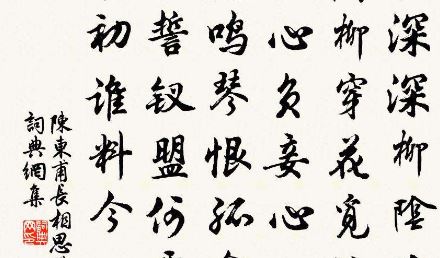 深深柳陰
柳穿花覓
心負妾心
鳴琴恨孤
誓釵盟何
初誰料今
陳東甫長相思
詞典網集